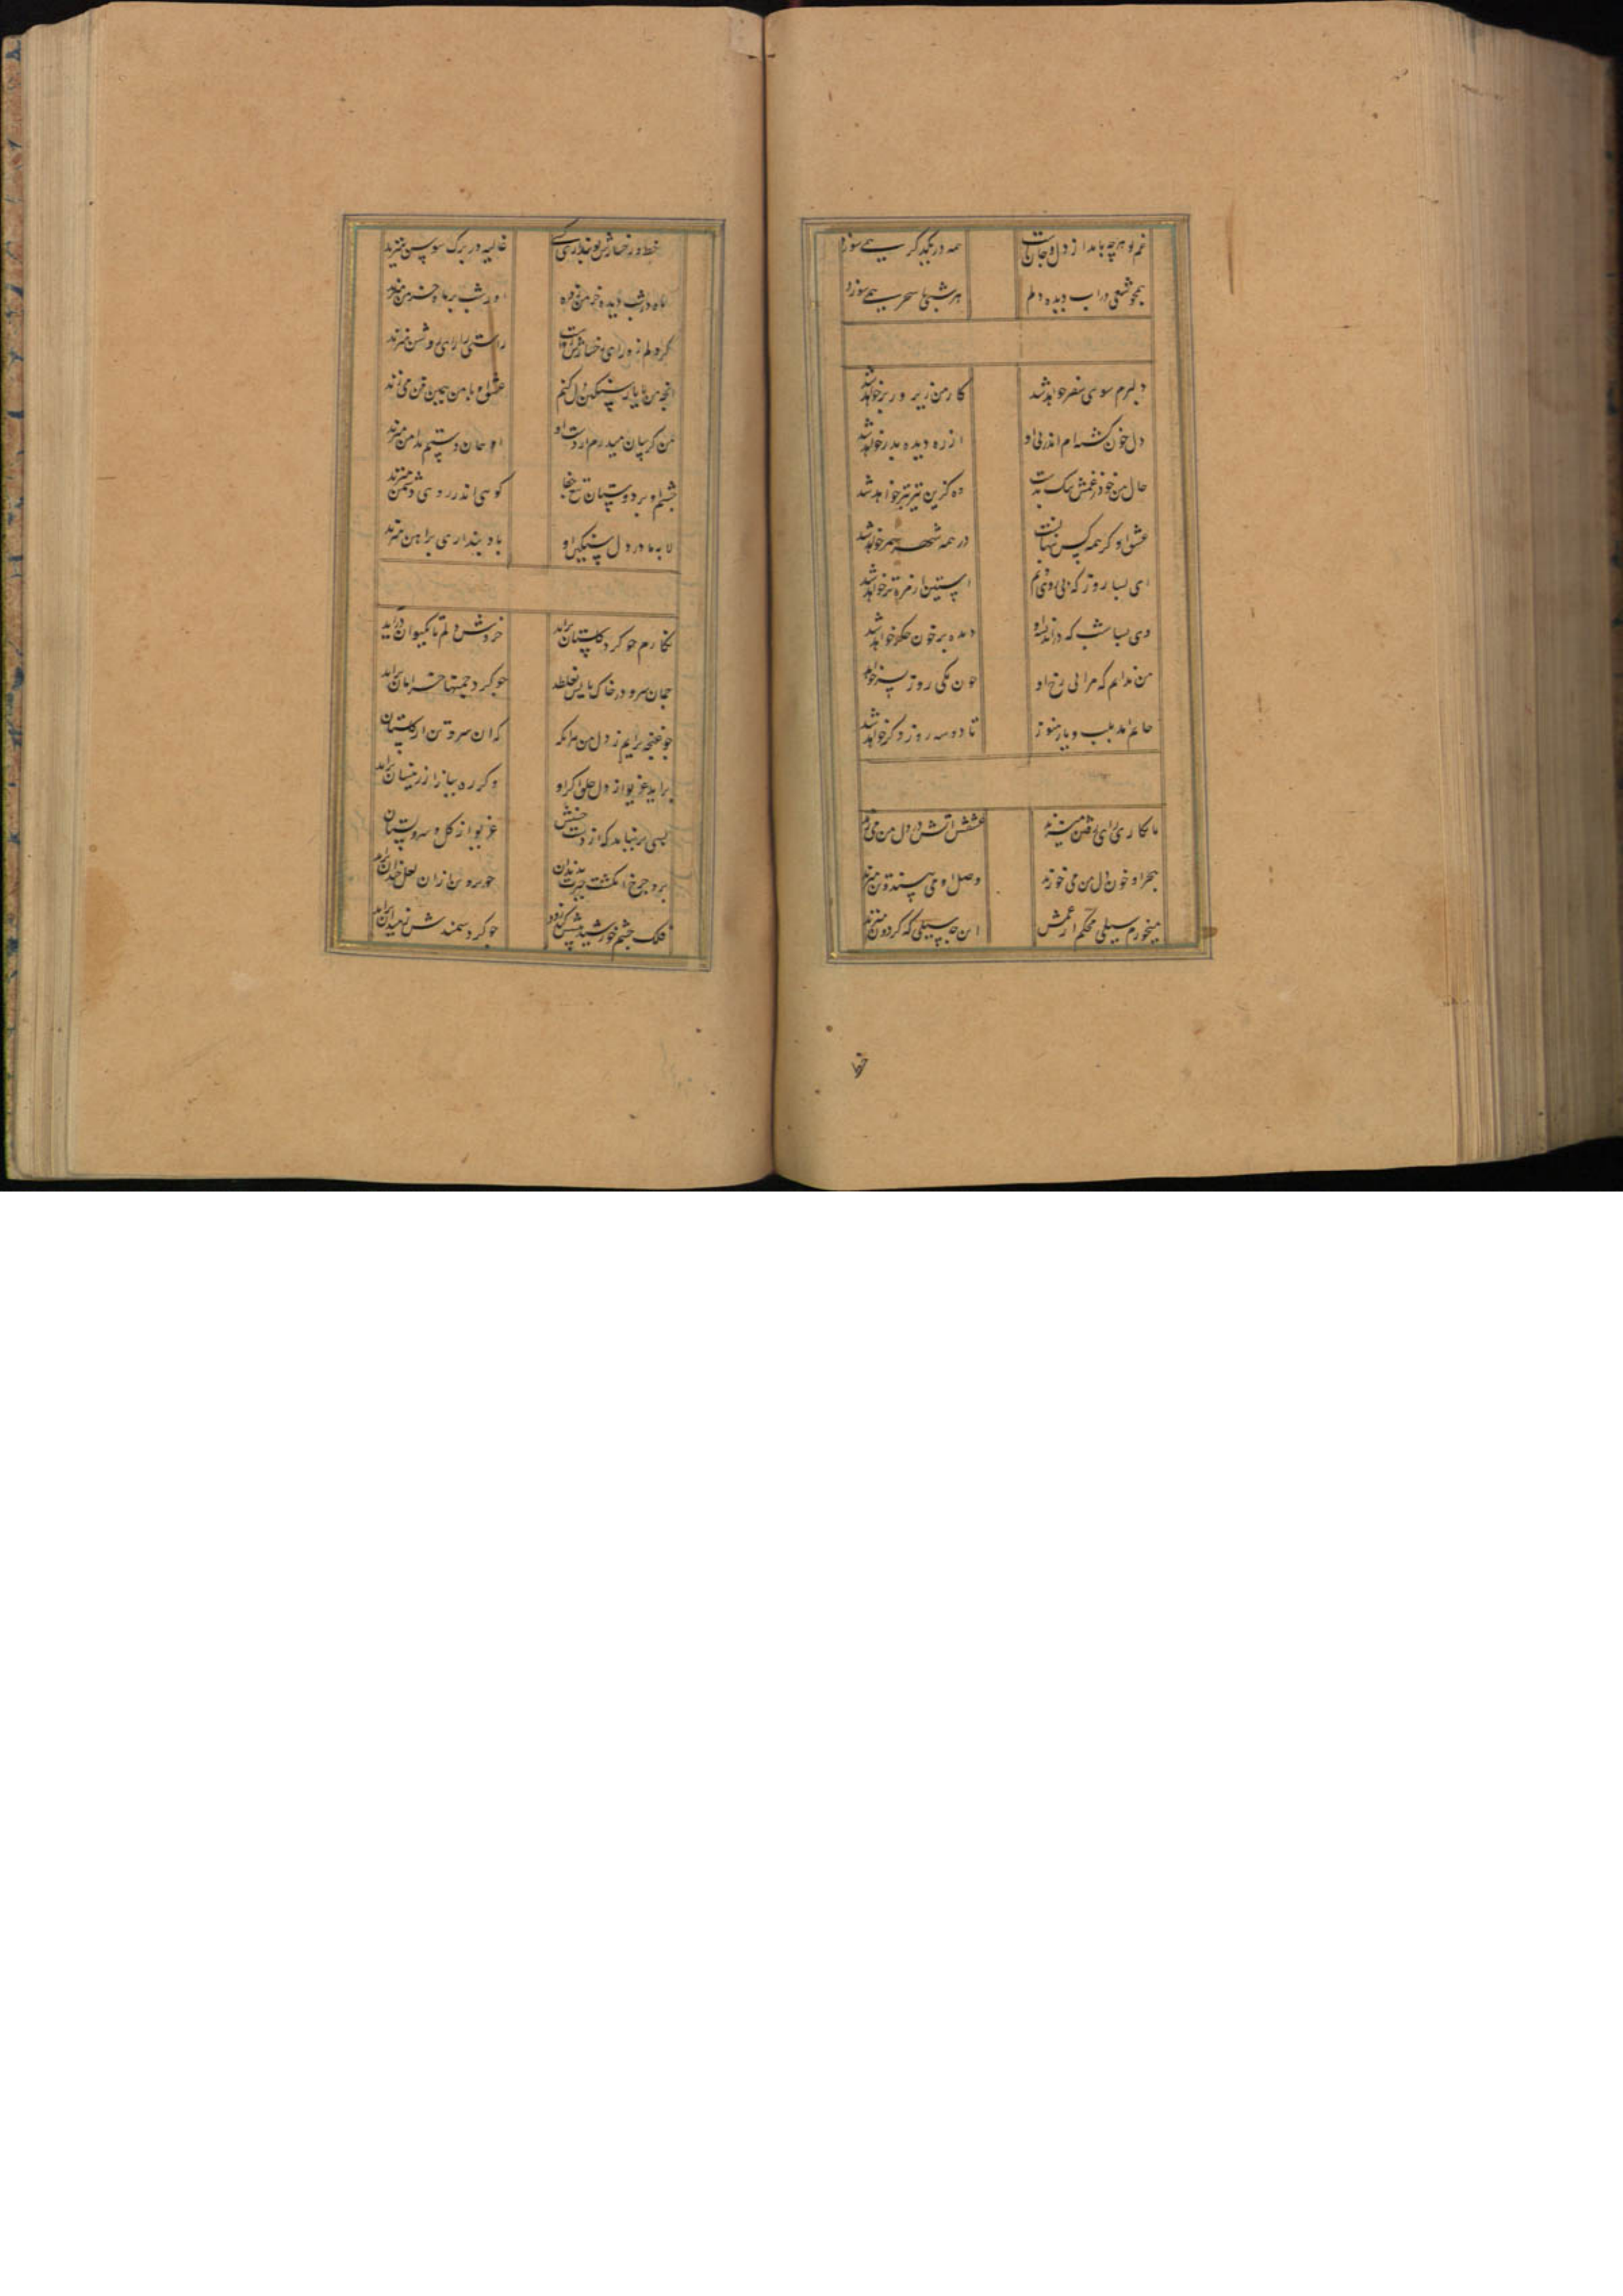 غم تو هرچه یابد از دل و جان همه در یکدگر همی سوزد
همچو شمعی در آب دیده دلم هر شبی تا سحر همی سوزد
دلبرم سوی سفر خواهد شد کار من زیر و زبر خواهد شد
دل خون گشته ام اندر پی او از ره دیده بدر خواهد شد
حال من خود ز غمش نیک بدست وه کزین نیز بتر خواهد شد
عشق او کز همه کس پنهانست در همه شهر سمر خواهد شد
ای بسا روز که بی روی توام آستین از مژه تر خواهد شد
وی بسا شب که در اندیشه او دیده پر خون جگر خواهد شد
من ندانم که مرا بی رخ او چون یکی روز بسر خواهد شد
جانم آمد بلب و یار هنوز تا دو سه روز دگر خواهد شد
تا نگاری رای رفتن میزند عشقش آتش در دل من می زند
هجر او خون دل من می خورد وصل او می پسندد تن میزند
میخورم سیلی محکم از غمش این چه سیلی که گردون میزند
خط و رخسارش تو پنداری کسی غالیه در برگ سوسن میزند
ماه در شب دیده خرمن زده او شب بر ماه خرمن میزند
گرد دلم زو رای رخسارش رواست راستی را رای روشن میزند
آنچه من با یار سنگین دل کنم عشق او با من همین فن می زند
من گریبان میدرم از دست او او بجان دستم بدامن میزند
چشم او بر دوستان تیغ جفا گویی اندر روی دشمن میزند
لابه ما در دل سنگین او باد پنداری بر آهن میزند
نگارم چو گرد گلستان برآید خروش دلم تا بکیوان برآید
چمان سرو در خاک پایش بغلطد چو گرد چمنها خرامان برآید
چو غنچه برآیم ز دل من هرآنگه که آن سرو تن از گلستان برآید
برآید غریو از دل خلق اگر او وگر ره بباز از زمستان برآید
بسی برنیاید که از دست حسنش غریو از گل و سروستان برآید
برد چرخ انگشت حیرت بدندان چو بیرون ناز آن لعل خندان برآید
فلک چشم خورشید پیشش کند زود چو گرد سمندش ز میدان برآید
خط و